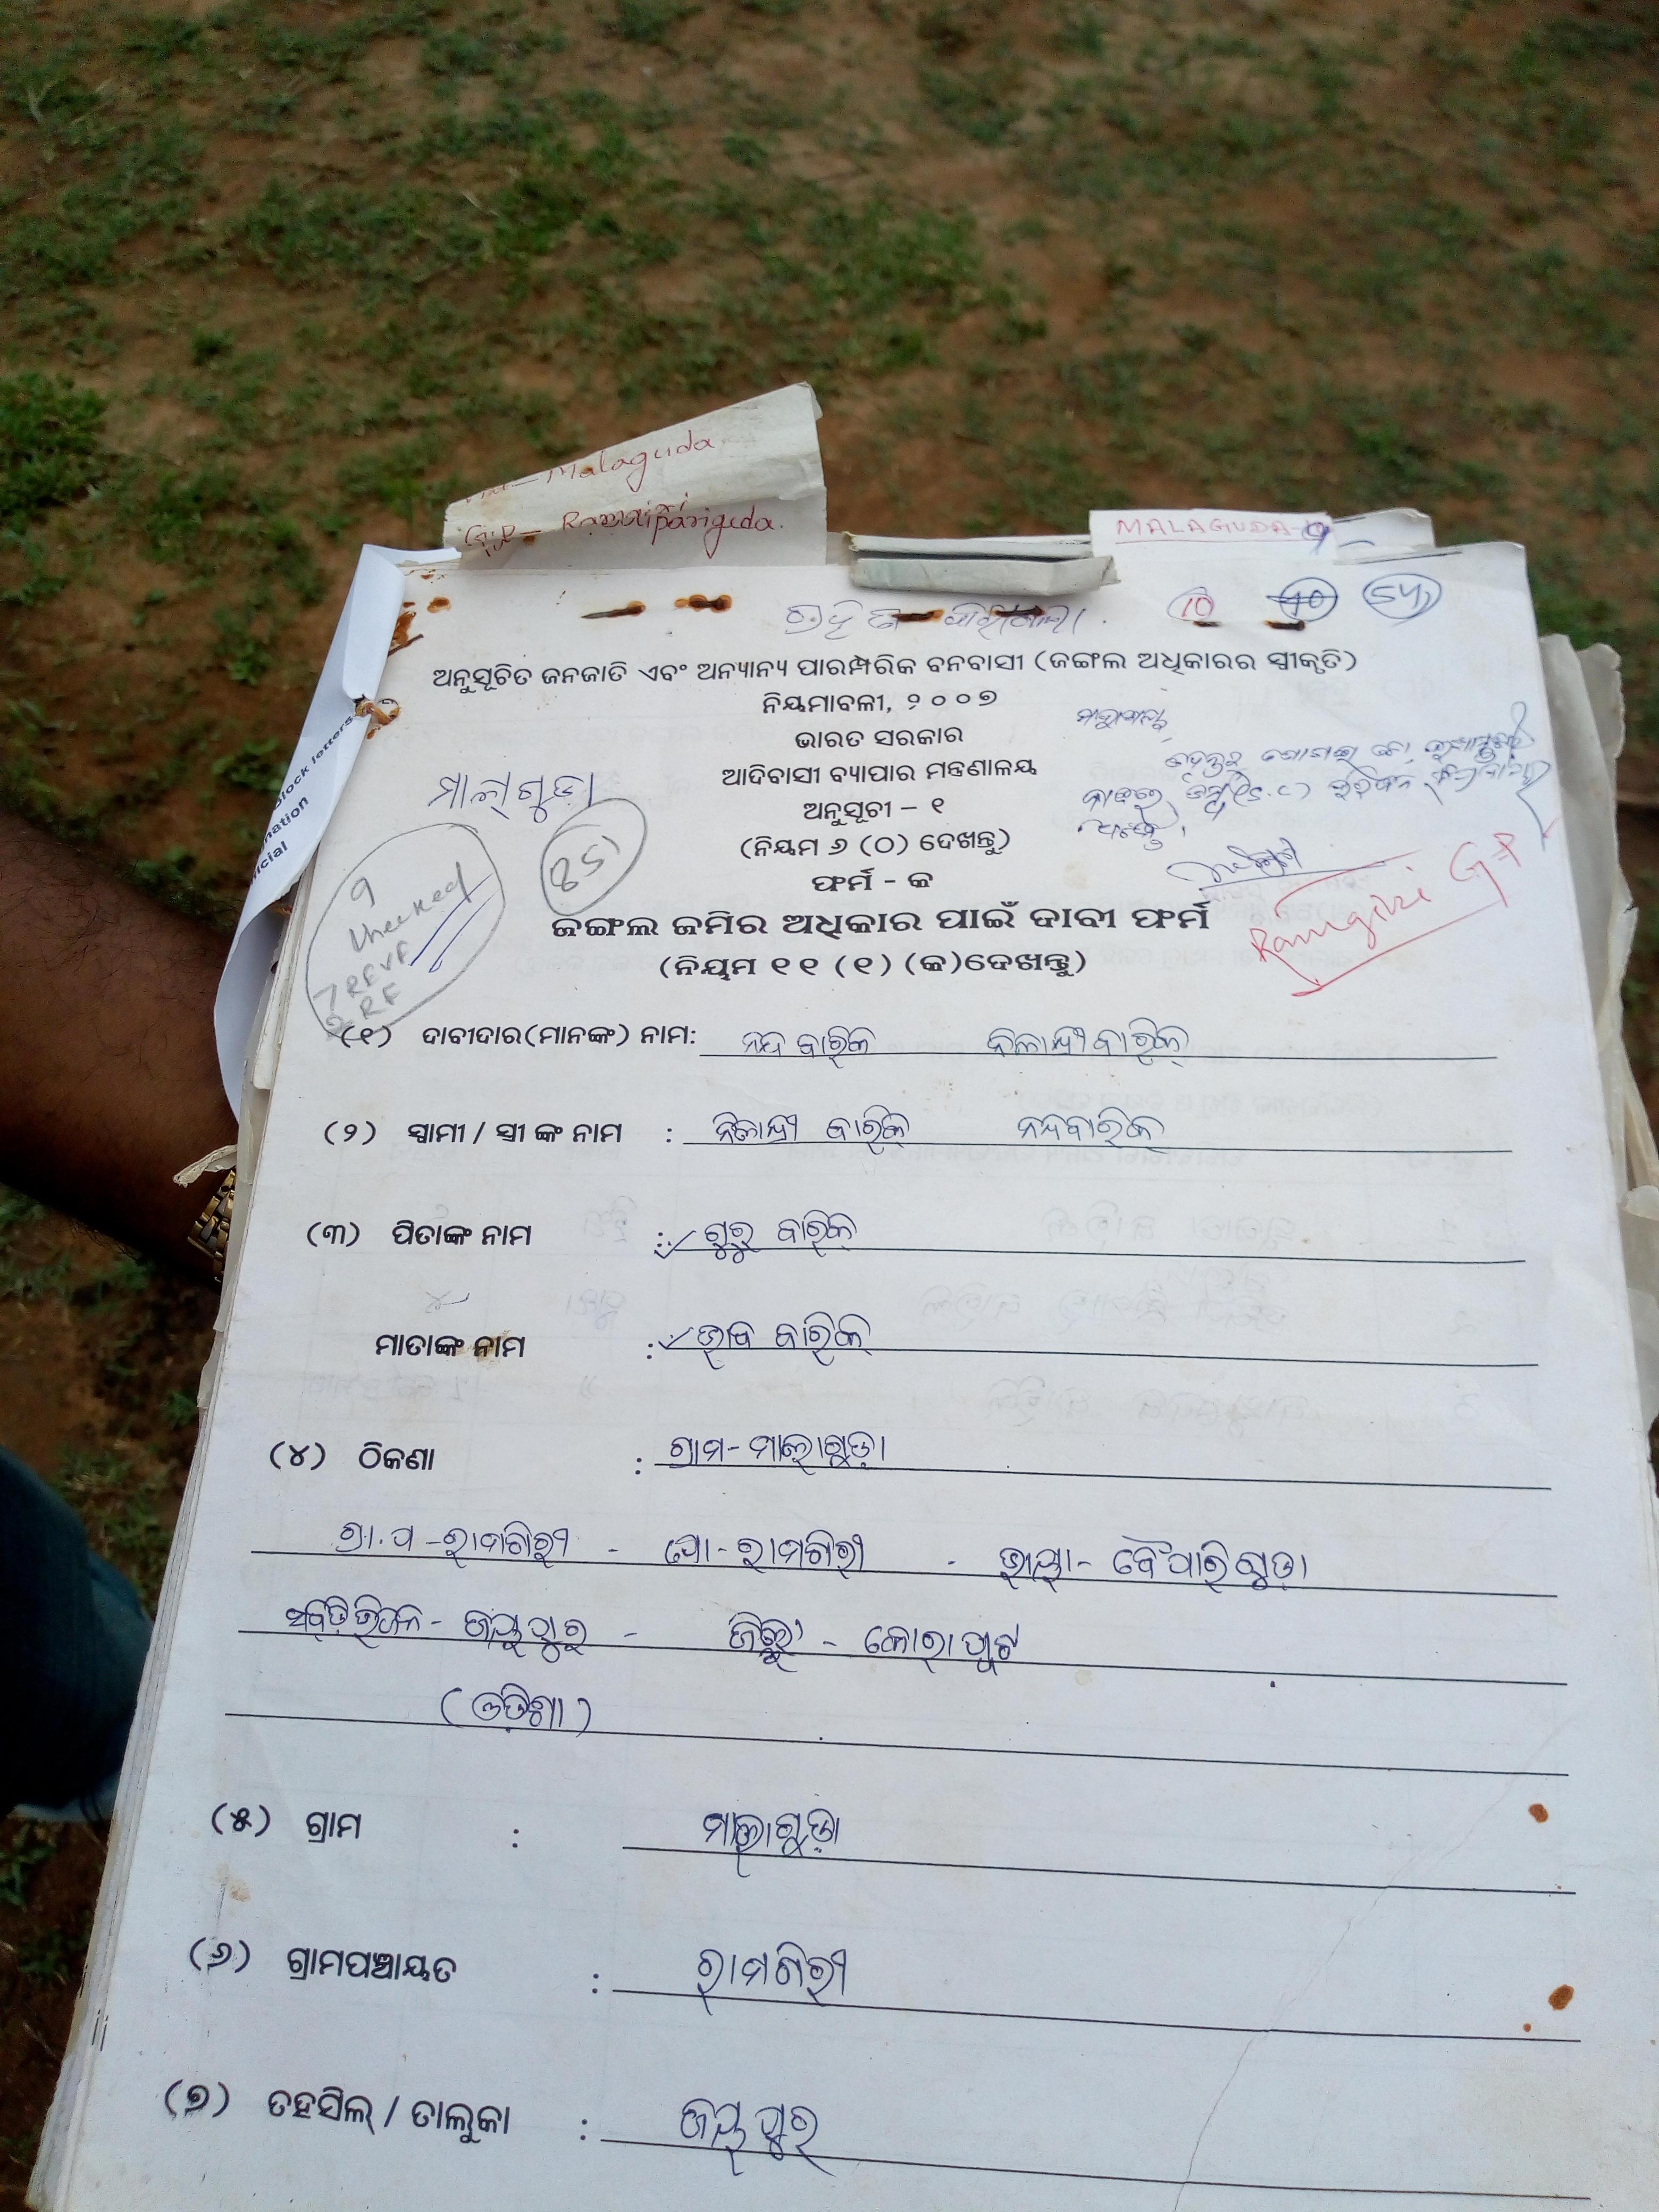 Malaguda
G.P -
MALAGUDA-9
10 40 54
ଅନୁସୂଚିତ ଜନଜାତି ଏବଂ ଅନ୍ୟାନ୍ୟ ପାରମ୍ପରିକ ବନବାସୀ (ଜଙ୍ଗଲ ଅଧିକାରର ସ୍ୱୀକୃତି)
ନିୟମାବଳୀ, ୨୦୦୭
ଭାରତ ସରକାର
ଆଦିବାସୀ ବ୍ୟାପାର ମନ୍ତ୍ରଣାଳୟ
ଅନୁସୂଚୀ – ୧
(ନିୟମ ୬ (ଠ) ଦେଖନ୍ତୁ)
ଫର୍ମ – କ
ଜଙ୍ଗଲ ଜମିର ଅଧିକାର ପାଇଁ ଦାବୀ ଫର୍ମ
(ନିୟମ ୧୧ (୧) (କ)ଦେଖନ୍ତୁ)
block letters
ମାଲ୍‌ଗୁଡ଼ା
9
checked
7 RF
RF
Ramgiri GP
(୧) ଦାବୀଦାର(ମାନଙ୍କ) ନାମ: ନନ୍ଦ ବାରିକ ନିଳାନ୍ଦ୍ରୀ ବାରିକ୍
(୨) ସ୍ୱାମୀ / ସ୍ତ୍ରୀ ଙ୍କ ନାମ : ନିଳାନ୍ଦ୍ରୀ ବାରିକ୍ ନନ୍ଦବାରିକ୍
(୩) ପିତାଙ୍କ ନାମ : ଗୁରୁ ବାରିକ୍
ମାତାଙ୍କ ନାମ : ବାରିକ୍
(୪) ଠିକଣା : ଗ୍ରାମ - ମାଲାଗୁଡ଼ା
ଗ୍ରା.ପ - ରାମଗିରୀ - ପୋ - ରାମଗିରୀ - ଭାୟା - ବୈପାରିଗୁଡ଼ା
ସବ୍‌ଡ଼ିଭିଜନ - ଜୟପୁର - ଜିଲ୍ଲା - କୋରାପୁଟ
(ଓଡ଼ିଶା)
(୫) ଗ୍ରାମ : ମାଲାଗୁଡ଼ା
(୬) ଗ୍ରାମପଞ୍ଚାୟତ : ରାମଗିରୀ
(୭) ତହସିଲ୍ / ତାଲୁକା : ଜୟପୁର